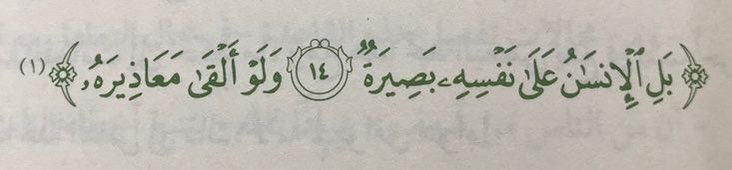 ﴿بَلِ ٱلْإِنسَٰنُ عَلَىٰ نَفْسِهِۦ بَصِيرَةٌ ١٤ وَلَوْ أَلْقَىٰ مَعَاذِيرَهُۥ﴾ (١)